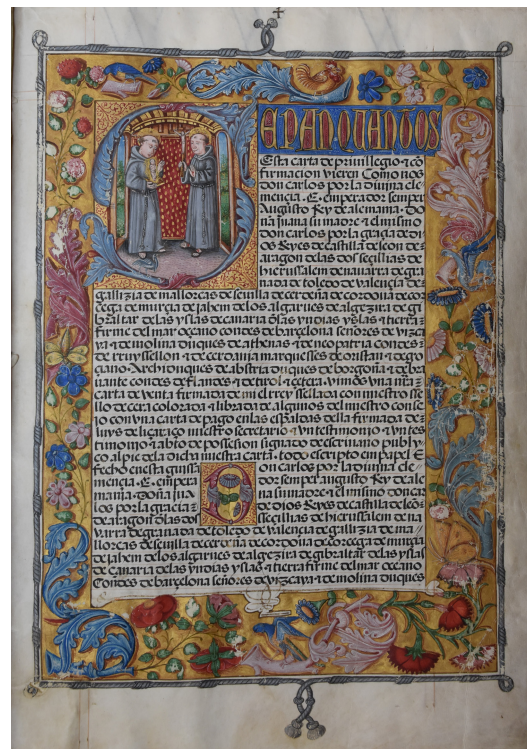 SEPAN QUANTOS
Esta carta de priuillegio ⁊ cō
firmacion vieren Como nos
don carlos por la diuina cle⸗
mencia. E. emperador semper
Augusto Rey de alemana. do
ña juana su madre ⁊ el mismo
don carlos por la gracia de di
os Reyes de castilla de leon de
aragon de las dos seçilias de
hierusalem de nauarra de gra
nada de toledo de valençia de
gallizia de mallorcas de seuilla de cerdeña de cordoua de co
rcega de murcia de jahem de los algarues de algezira de gi
braltar de las yslas de canaria de las yndias yslas ⁊ tierra
firme del mar oçeano condes de barcelona señores de vizca
ya ⁊ de molina duques de athenas ⁊ de neopatria condes
de rruysellon ⁊ de cerdania marqueses de oristan ⁊ de go
çiano Archiduques de abstria duques de borgoña ⁊ de bra
uante condes de flandes ⁊ de tirol ⁊ cetera. vimos vna nr̃a
carta de venta firmada de mi el rey ⁊ sellada con nuestro se
llo de cera colorada ⁊ librada de algunos del nuestro conse
jo con vna carta de pago en las espaldas della firmada de
nuestro secretario ⁊ vn testimonio
⁊ abto de possesion signado de escriuano publi
co al pie de la dicha nuestra carta. todo escripto en papel
fecho en esta guissa Don carlos por la diuina cle⸗
mençia. E. empera dor semper augusto Rey de ale
mania. doña jua na su madre ⁊ el mismo don car
los por la gracia de dios Reyes de castilla de leō
de aragon de las dos seçilias de hierusalem de na
uarra de granada de toledo de valençia de gallizia de ma
llorcas de seuilla de cerdeña de cordoua de corcega de murçia
de jahem de los algarues de algezira de gibraltar de las yslas
de canaria de las yndias yslas ⁊ tierra firme del mar oçeano
Condes de barcelona señores de vizcaya ⁊ de molina duques